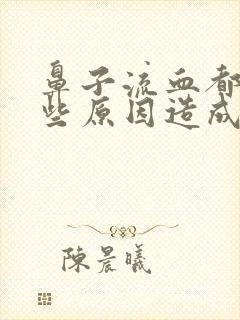 鼻子流血都
些原因造成
陳晨曦